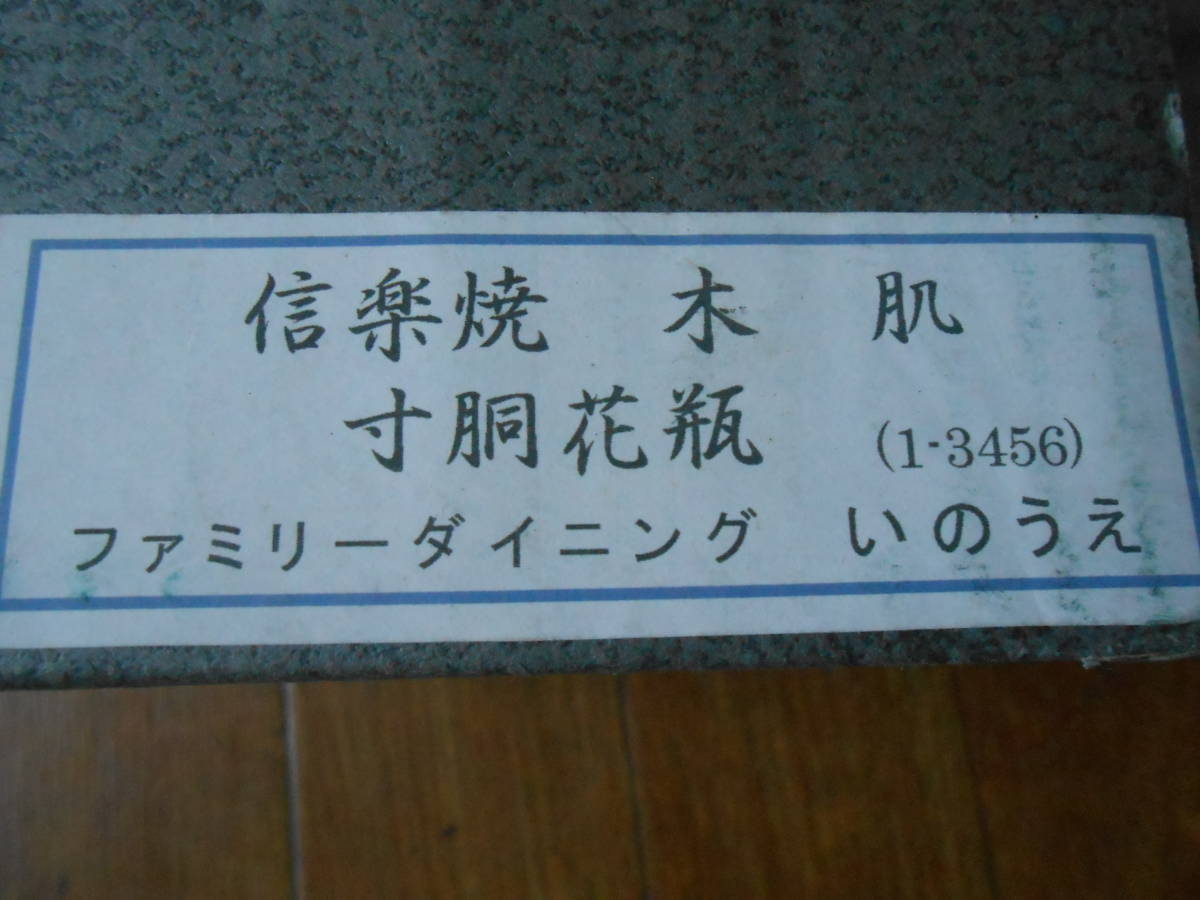 信楽焼　木　肌
寸胴花瓶　(1-3456)
ファミリーダイニング　いのうえ